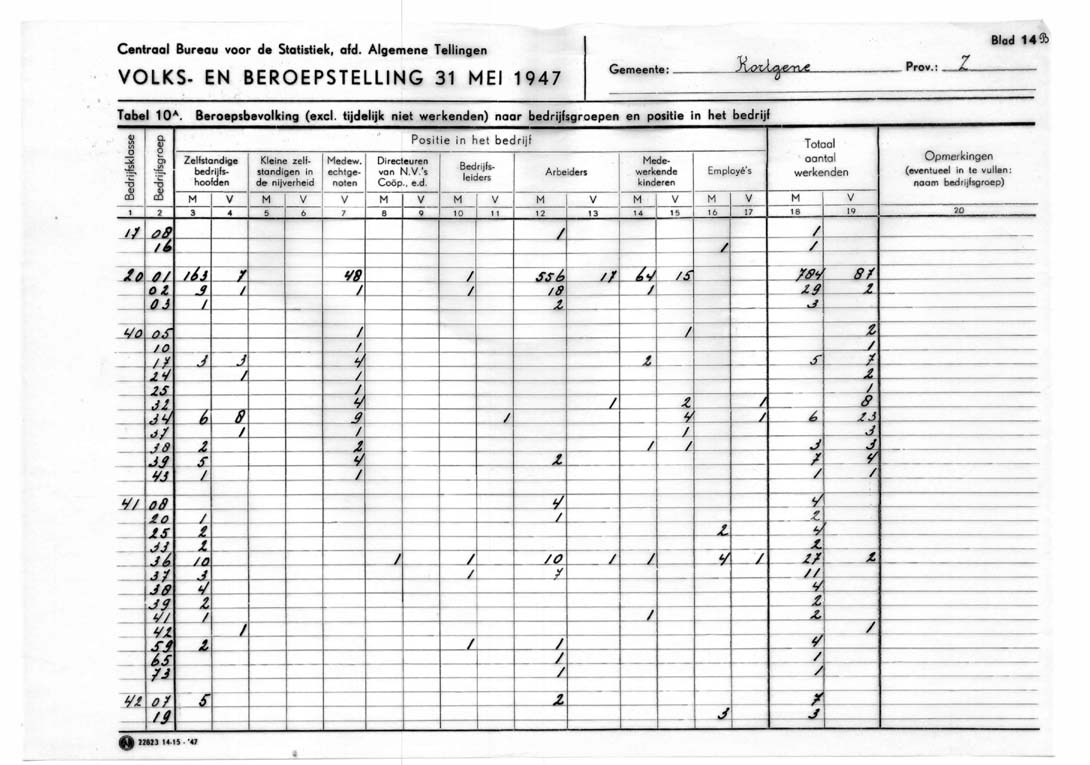 Centraal Bureau voor de Statistiek, afd. Algemene Tellingen
VOLKS- EN BEROEPSTELLING 31 MEI 1947
Gemeente: Kortgene Prov.: Z
Blad 14 B
Tabel 10A. Beroepsbevolking (excl. tijdelijk niet werkenden) naar bedrijfsgroepen en positie in het bedrijf
Bedrijfsklasse Bedrijfsgroep Positie in het bedrijf Totaal aantal werkenden Opmerkingen (eventueel in te vullen: naam bedrijfsgroep)
Zelfstandige bedrijfshoofden Kleine zelfstandigen in de nijverheid Medew. echtgenoten Directeuren van N.V.'s Coöp., e.d. Bedrijfsleiders Arbeiders Medewerkende kinderen Employé's
M V M V V M V M V M V M V M V M V
1 2 3 4 5 6 7 8 9 10 11 12 13 14 15 16 17 18 19 20
17 08 1 1
16 1 1
20 01 163 7 48 1 556 17 64 15 784 87
02 9 1 1 1 18 1 29 2
03 1 2 3
40 05 1 1 2
10 1 1
17 3 3 4 2 5 7
24 1 1 2
25 1 1
32 4 1 2 1 8
34 6 8 9 1 4 1 6 23
37 1 1 1 3
38 2 2 1 1 3 3
39 5 4 2 7 4
43 1 1 1 1
41 08 4 4
20 1 1 2
25 2 2 4
33 2 2
36 10 1 1 10 1 1 4 1 27 2
37 3 1 7 11
38 4 4
39 2 2
41 1 1 2
42 1 1
59 2 1 1 4
65 1 1
73 1 1
42 07 5 2 7
19 3 3
22623 14-15 - '47